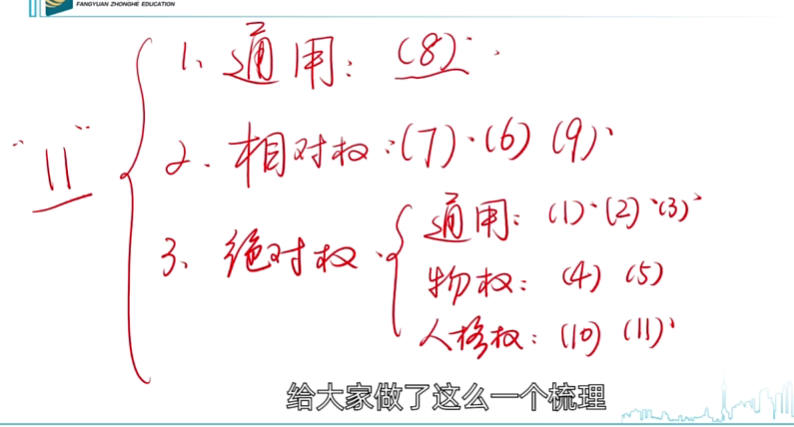 FANGYUAN ZHONGHE EDUCATION
"11"
1、通用：(8)
2.相对权：(7)、(6) (9)
3、绝对权
通用：(1)、(2)、(3)
物权：(4) (5)
人格权：(10) (11)
给大家做了这么一个梳理